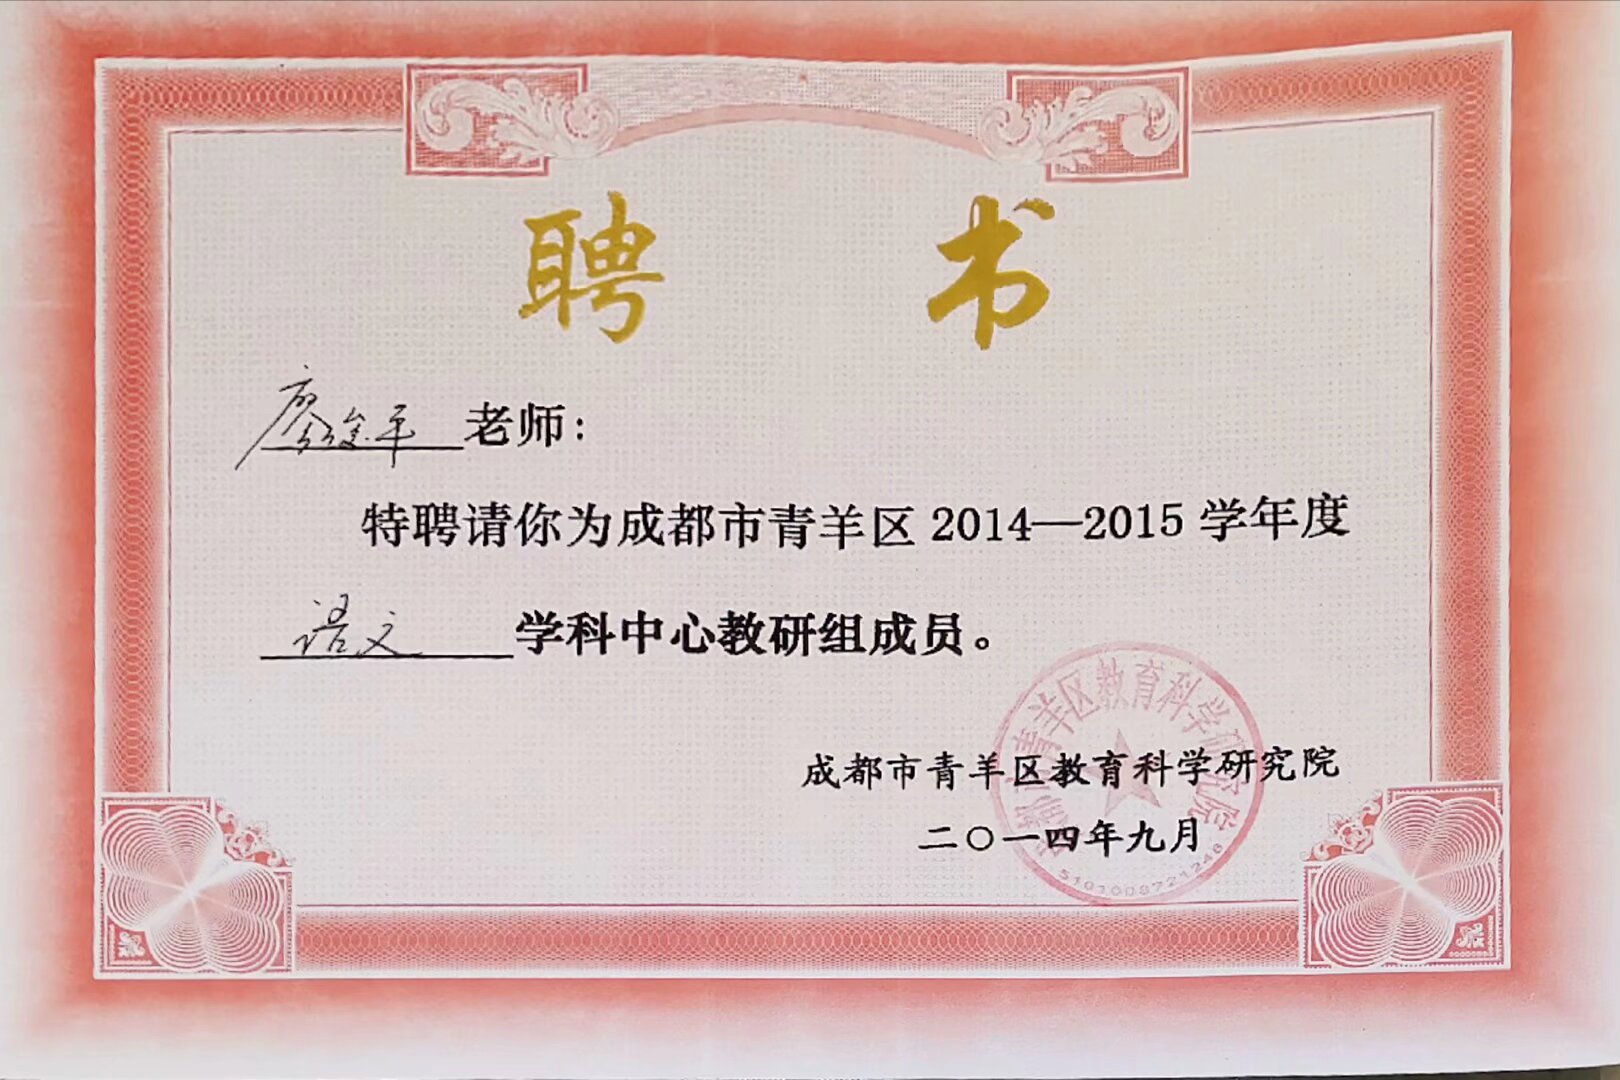 聘书
廖 平老师：
特聘请你为成都市青羊区 2014—2015 学年度
语文 学科中心教研组成员。
成都市青羊区教育科学研究院
二〇一四年九月
青羊区教育科学研究院